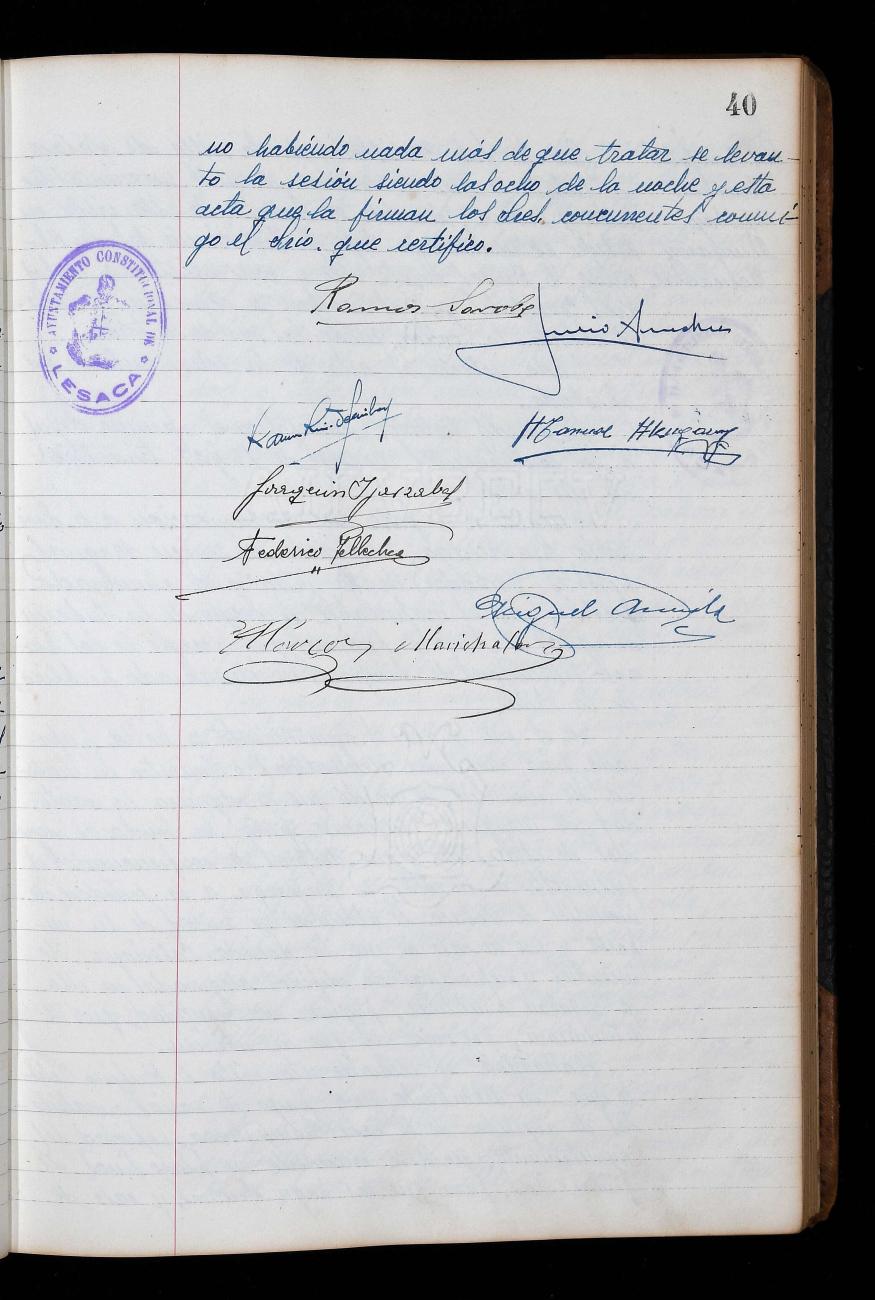 40
no habiendo nada más de que tratar se levan-
to la sesión siendo las ocho de la noche y esta
acta que la firman los Sres. concurrentes conmi-
go el Srio. que certifico.
AYUNTAMIENTO CONSTITUCIONAL DE
LESACA
Ramos
Manuel
Joaquin Yarzabal
Federico Tellechea
Miguel
Marichalar